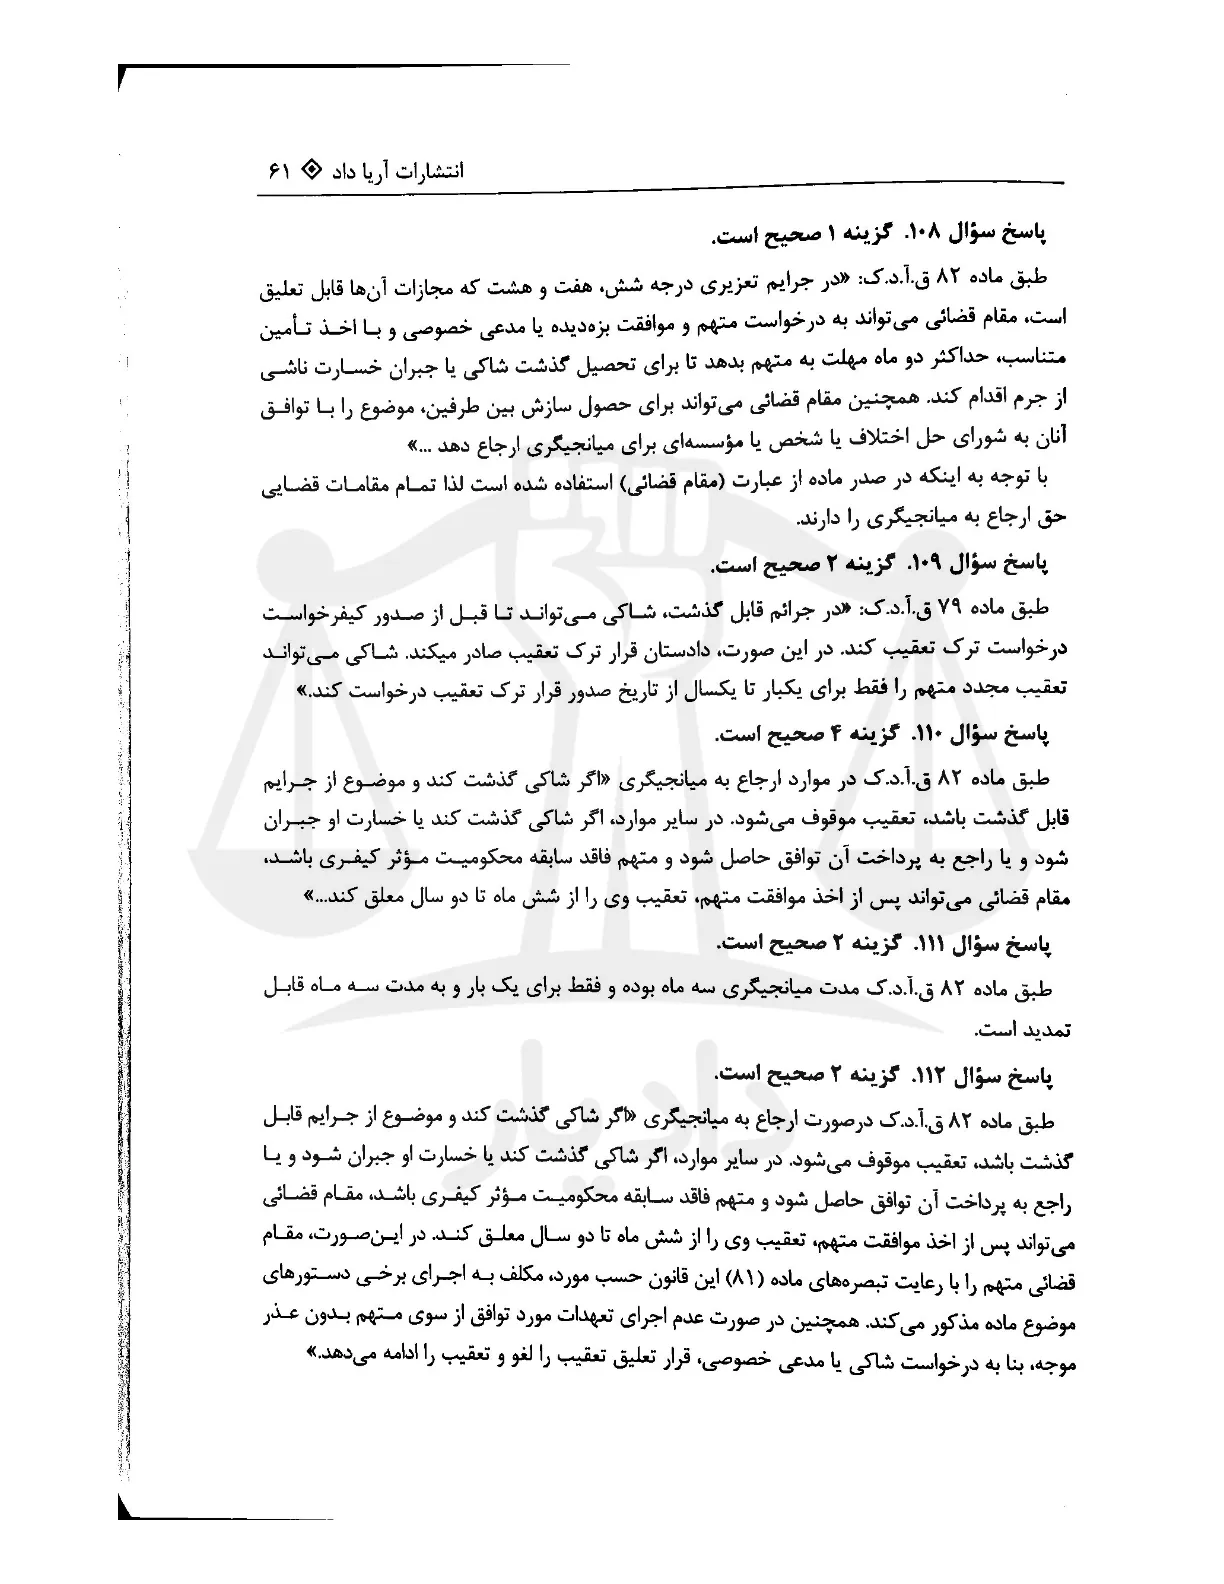 انتشارات آریا داد ◈ ۶۱
پاسخ سؤال ۱۰۸. گزینه ۱ صحیح است.
طبق ماده ۸۲ ق.آ.د.ک: «در جرایم تعزیری درجه شش، هفت و هشت که مجازات آن‌ها قابل تعلیق
است، مقام قضائی می‌تواند به درخواست متهم و موافقت بزه‌دیده یا مدعی خصوصی و با اخذ تأمین
متناسب، حداکثر دو ماه مهلت به متهم بدهد تا برای تحصیل گذشت شاکی یا جبران خسارت ناشی
از جرم اقدام کند. همچنین مقام قضائی می‌تواند برای حصول سازش بین طرفین، موضوع را با توافق
آنان به شورای حل اختلاف یا شخص یا مؤسسه‌ای برای میانجیگری ارجاع دهد ...»
با توجه به اینکه در صدر ماده از عبارت (مقام قضائی) استفاده شده است لذا تمام مقامات قضایی
حق ارجاع به میانجیگری را دارند.
پاسخ سؤال ۱۰۹. گزینه ۲ صحیح است.
طبق ماده ۷۹ ق.آ.د.ک: «در جرائم قابل گذشت، شاکی می‌تواند تا قبل از صدور کیفرخواست
درخواست ترک تعقیب کند. در این صورت، دادستان قرار ترک تعقیب صادر میکند. شاکی می‌تواند
تعقیب مجدد متهم را فقط برای یکبار تا یکسال از تاریخ صدور قرار ترک تعقیب درخواست کند.»
پاسخ سؤال ۱۱۰. گزینه ۴ صحیح است.
طبق ماده ۸۲ ق.آ.د.ک در موارد ارجاع به میانجیگری «اگر شاکی گذشت کند و موضوع از جرایم
قابل گذشت باشد، تعقیب موقوف می‌شود. در سایر موارد، اگر شاکی گذشت کند یا خسارت او جبران
شود و یا راجع به پرداخت آن توافق حاصل شود و متهم فاقد سابقه محکومیت مؤثر کیفری باشد،
مقام قضائی می‌تواند پس از اخذ موافقت متهم، تعقیب وی را از شش ماه تا دو سال معلق کند...»
پاسخ سؤال ۱۱۱. گزینه ۲ صحیح است.
طبق ماده ۸۲ ق.آ.د.ک مدت میانجیگری سه ماه بوده و فقط برای یک بار و به مدت سه ماه قابل
تمدید است.
پاسخ سؤال ۱۱۲. گزینه ۲ صحیح است.
طبق ماده ۸۲ ق.آ.د.ک درصورت ارجاع به میانجیگری «اگر شاکی گذشت کند و موضوع از جرایم قابل
گذشت باشد، تعقیب موقوف می‌شود. در سایر موارد، اگر شاکی گذشت کند یا خسارت او جبران شود و یا
راجع به پرداخت آن توافق حاصل شود و متهم فاقد سابقه محکومیت مؤثر کیفری باشد، مقام قضائی
می‌تواند پس از اخذ موافقت متهم، تعقیب وی را از شش ماه تا دو سال معلق کند. در این‌صورت، مقام
قضائی متهم را با رعایت تبصره‌های ماده (۸۱) این قانون حسب مورد، مکلف به اجرای برخی دستورهای
موضوع ماده مذکور می‌کند. همچنین در صورت عدم اجرای تعهدات مورد توافق از سوی متهم بدون عذر
موجه، بنا به درخواست شاکی یا مدعی خصوصی، قرار تعلیق تعقیب را لغو و تعقیب را ادامه می‌دهد.»
دادیار